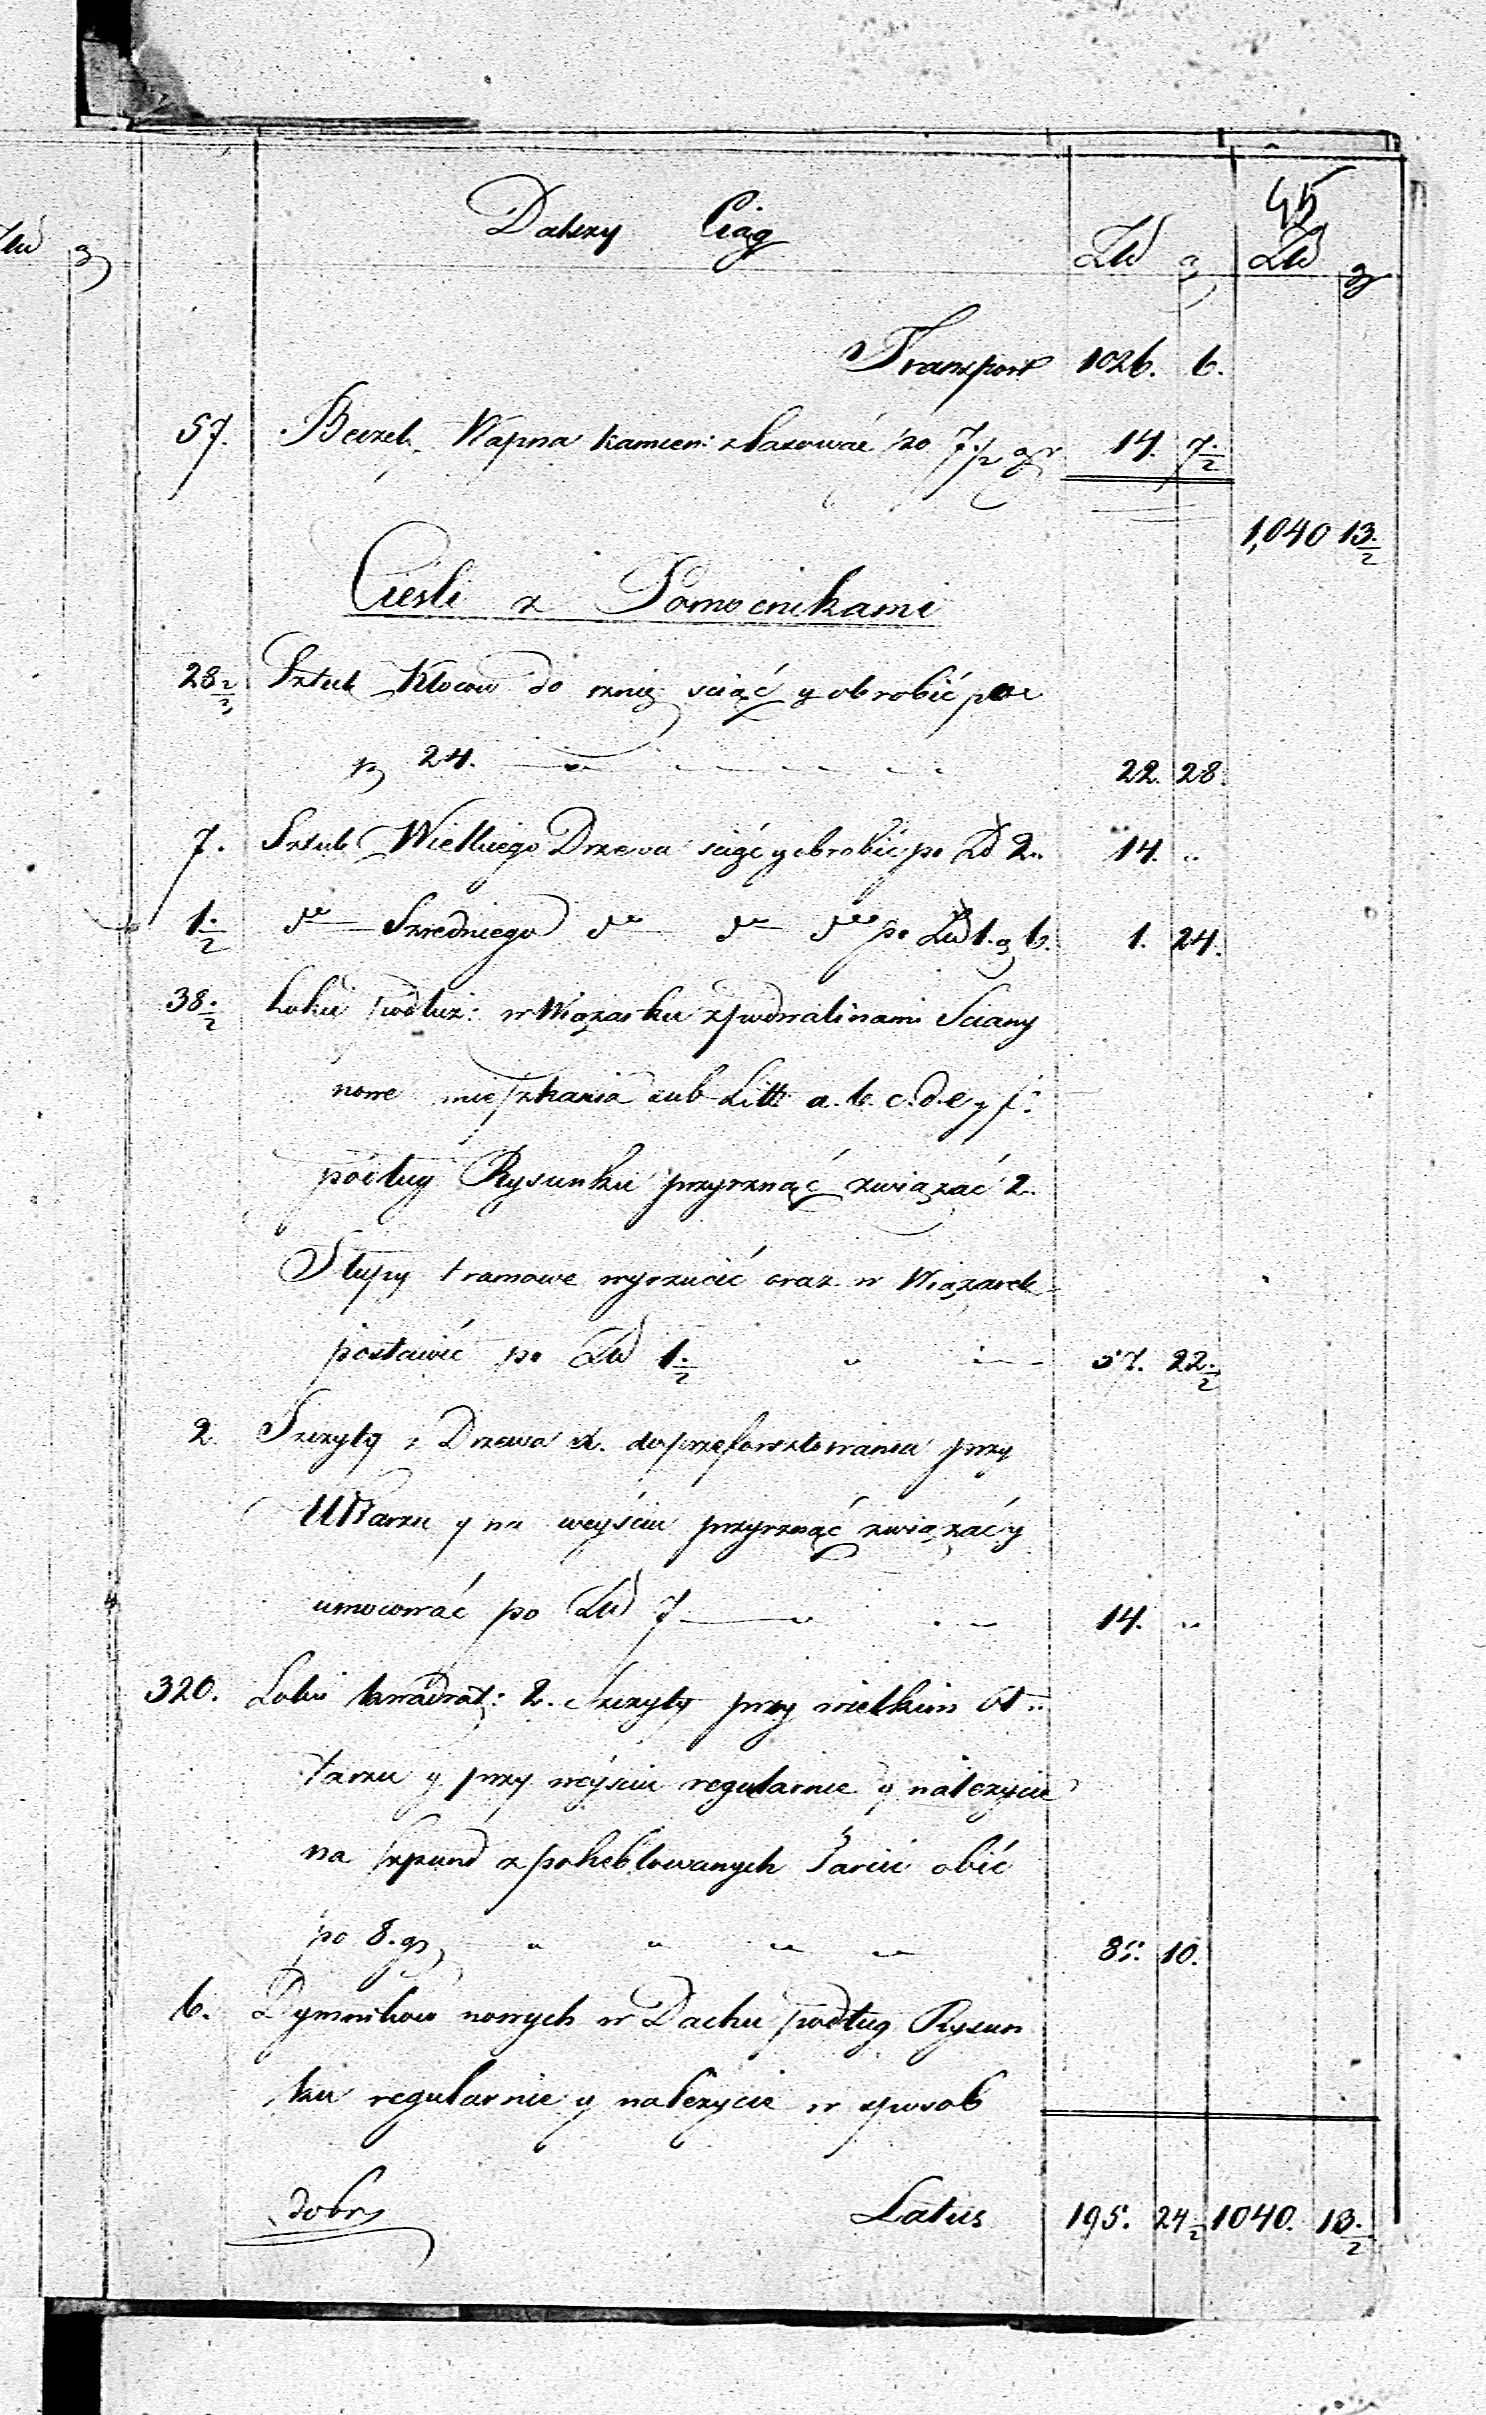 45
Dalszy Ciąg Złł g Złł gr
Złł g
Transport 1026. 6.
57. Beczek Wapna kamien: zlasować po 7 1/2 gr 14. 7 1/2
1,040 13 1/2
Cieśli z Pomocnikami
28 2/3 Sztuk Kloców do rznię: sciąć y obrobić po
g 24. 22. 28.
7. Sztuk Wielkiego Drzewa sciąć y obrobić po Zł 2. 14. "
1 1/2 dto Szredniego dto dto dto po Złł 1. g 6. 1. 24.
38 1/2 Łokci podłuż: w Wiązarku z podwalinami Sciany
nowe mieszkania sub Litt: a. b. c. d. e y f.
podług Rysunku przyrznąć związać 2.
Słupy tramowe wyrzucić oraz w Wiązarek
postawić po Złł 1 1/2 57. 22 1/2
2. Szczyty z Drzewa do przeforsztowania przy
Ułtarzu y na weyściu przyrznąć związać y
umocować po Złł 7 14. "
320. Łokci kwadrat: 2. Szczyty przy wielkim Oł
tarzu y przy weyściu regularnie y należycie
na szpund z poheblowanych Tarcic obić
po 8. gr 85. 10.
6. Dymników nowych w Dachu podług Rysun
ku regularnie y należycie w sposob
dobry Latus 195. 24 1/2 1040. 13 1/2